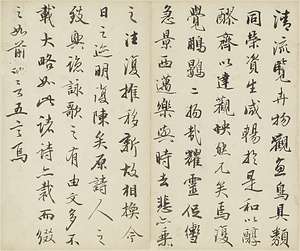 清流覽卉物觀魚鳥具類
同榮資生咸暢於是和以醇
醪齊以達觀怏然兀矣焉復
覺鵬鷃二物哉耀靈促轡
急景西邁樂與時去悲亦系
之往復推移新故相換今
日之迹明復陳矣原詩人之
致興諒詠歌之有由文多不
載大略如此諸詩亦裁而綴
之如前四言五言焉